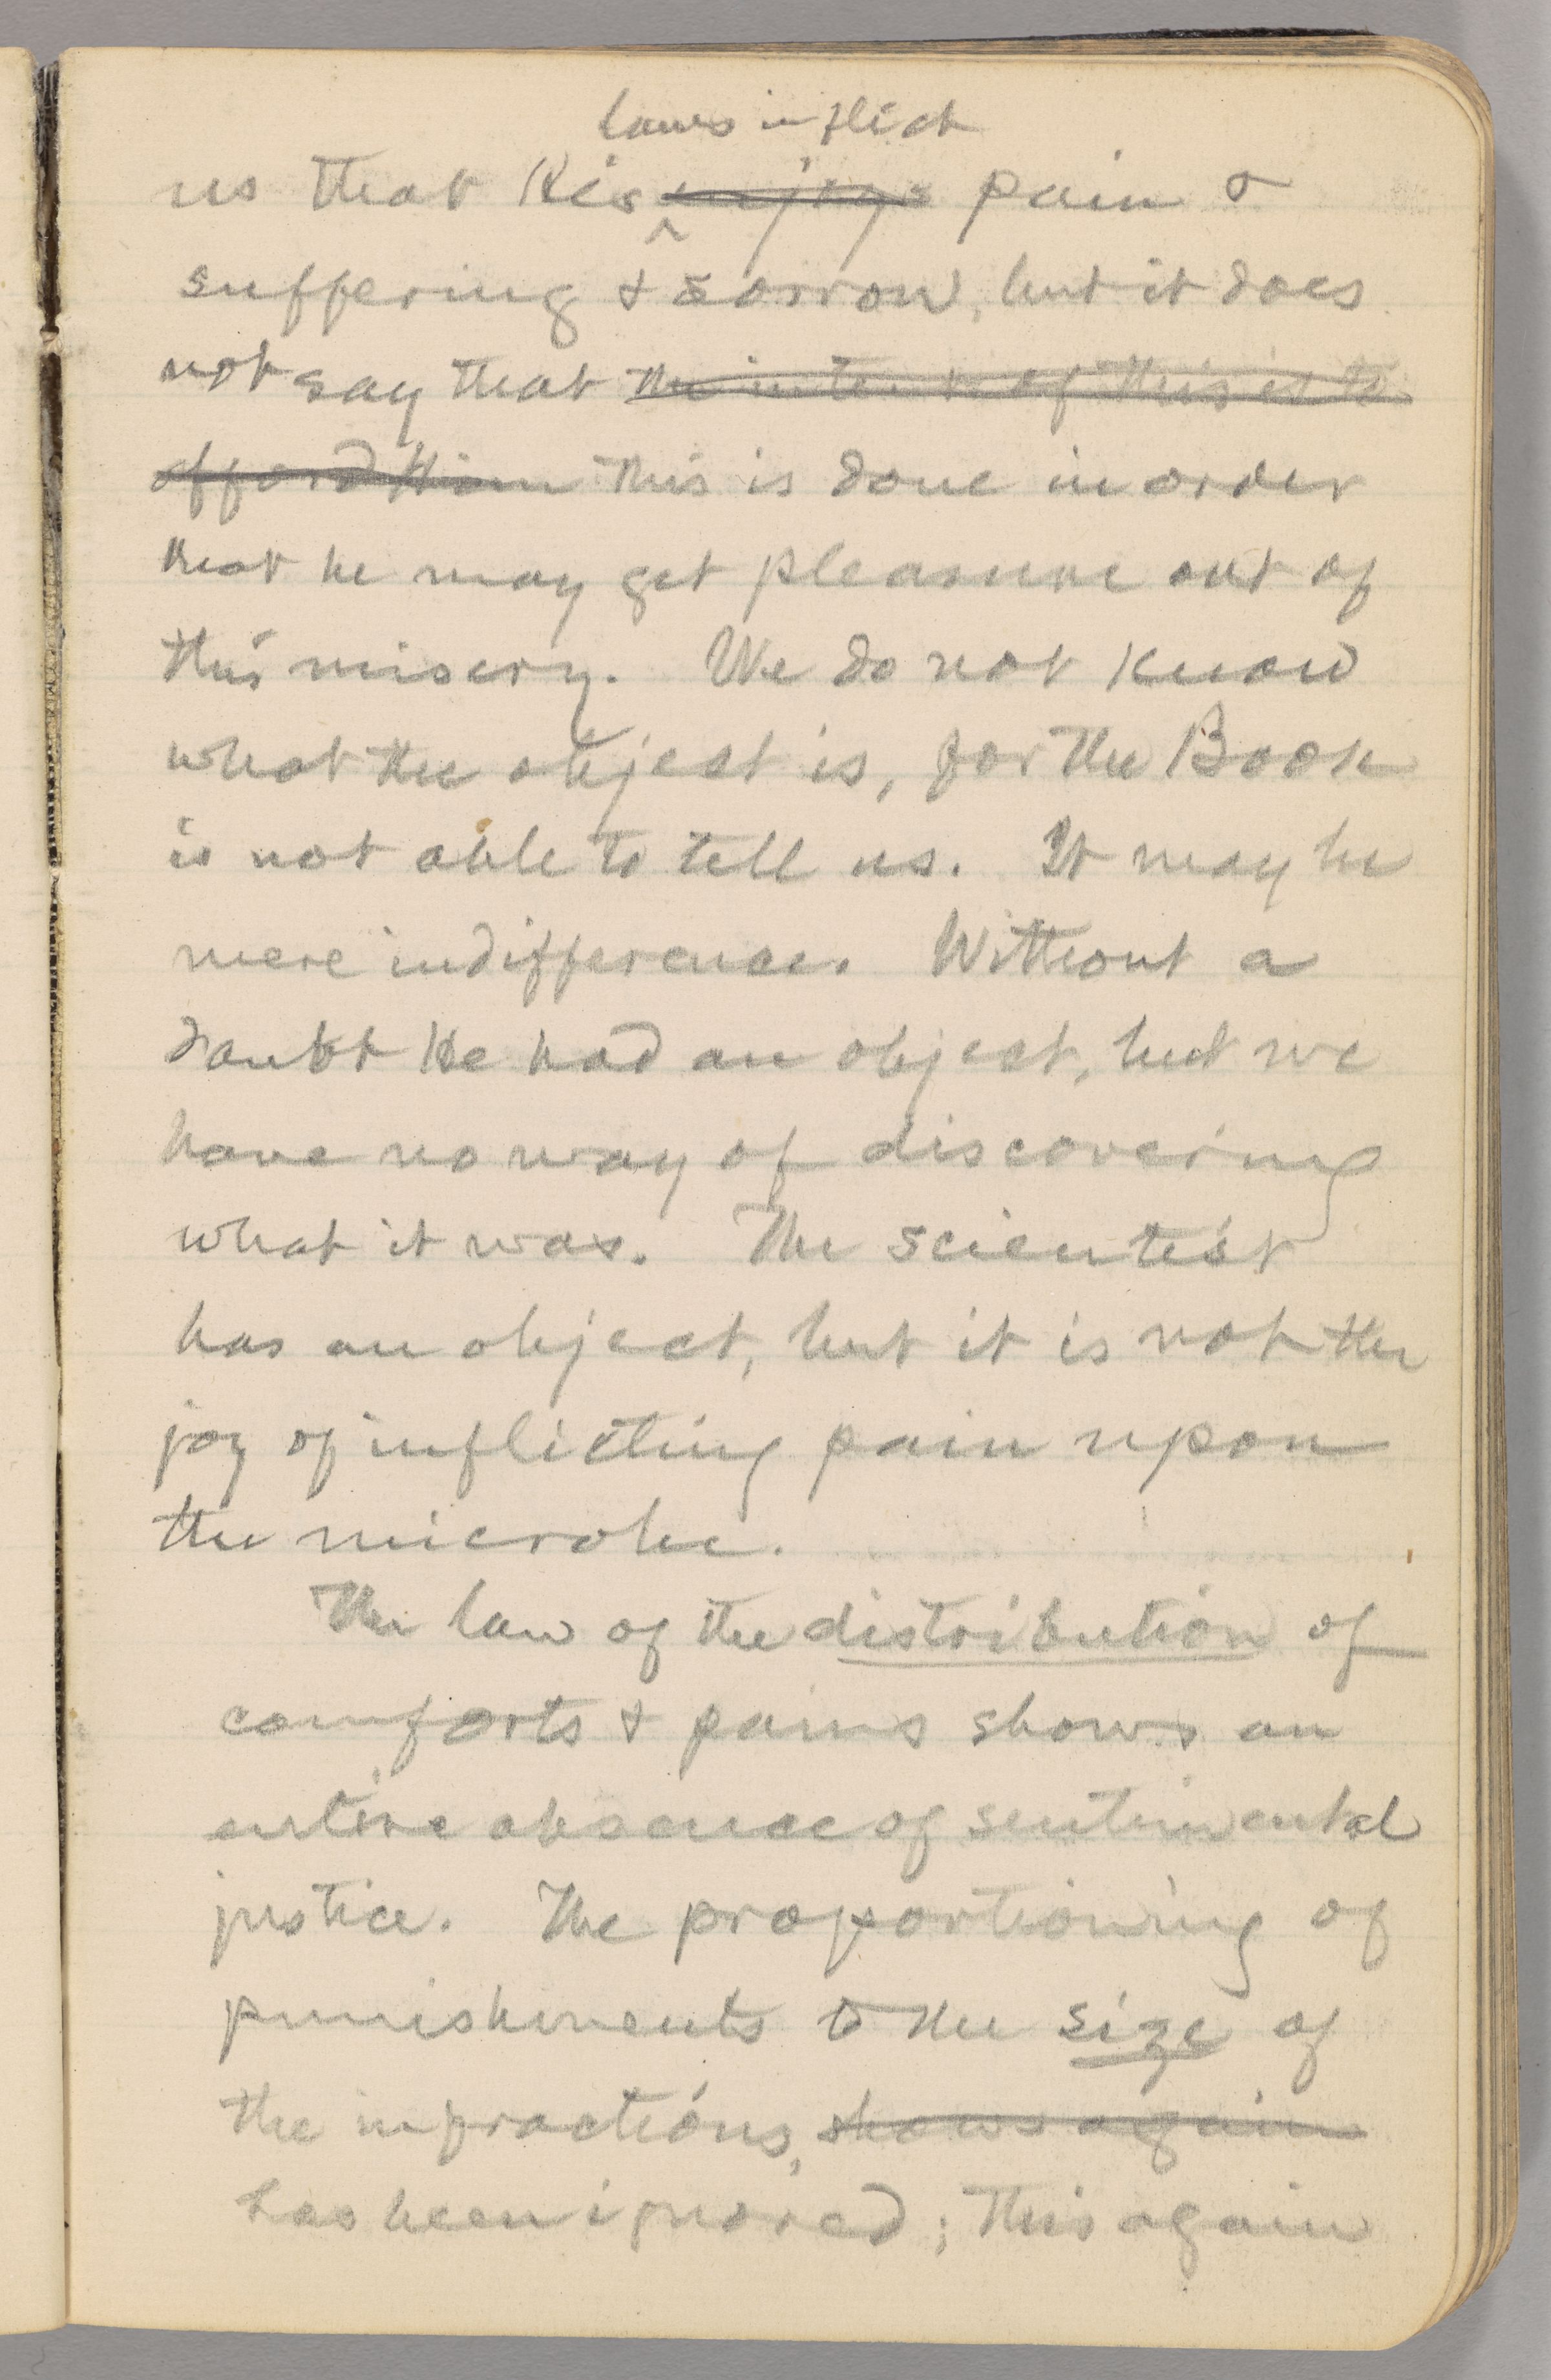 laws inflict
us that His enjoys pain &
suffering & sorrow, but it does
not say that the intent of this is to
afford Him this is done in order
that he may get pleasure out of
this misery. We do not know
what the object is, for the Book
is not able to tell us. It may be
mere indifference. Without a
doubt He had an object, but we
have no way of discovering
what it was. The scientist
has an object, but it is not the
joy of inflicting pain upon
the microbe.
The law of the distribution of
comforts & pains shows an
entire absence of sentimental
justice. The proportioning of
punishments to the size of
the infractions, shows again
has been ignored; this again